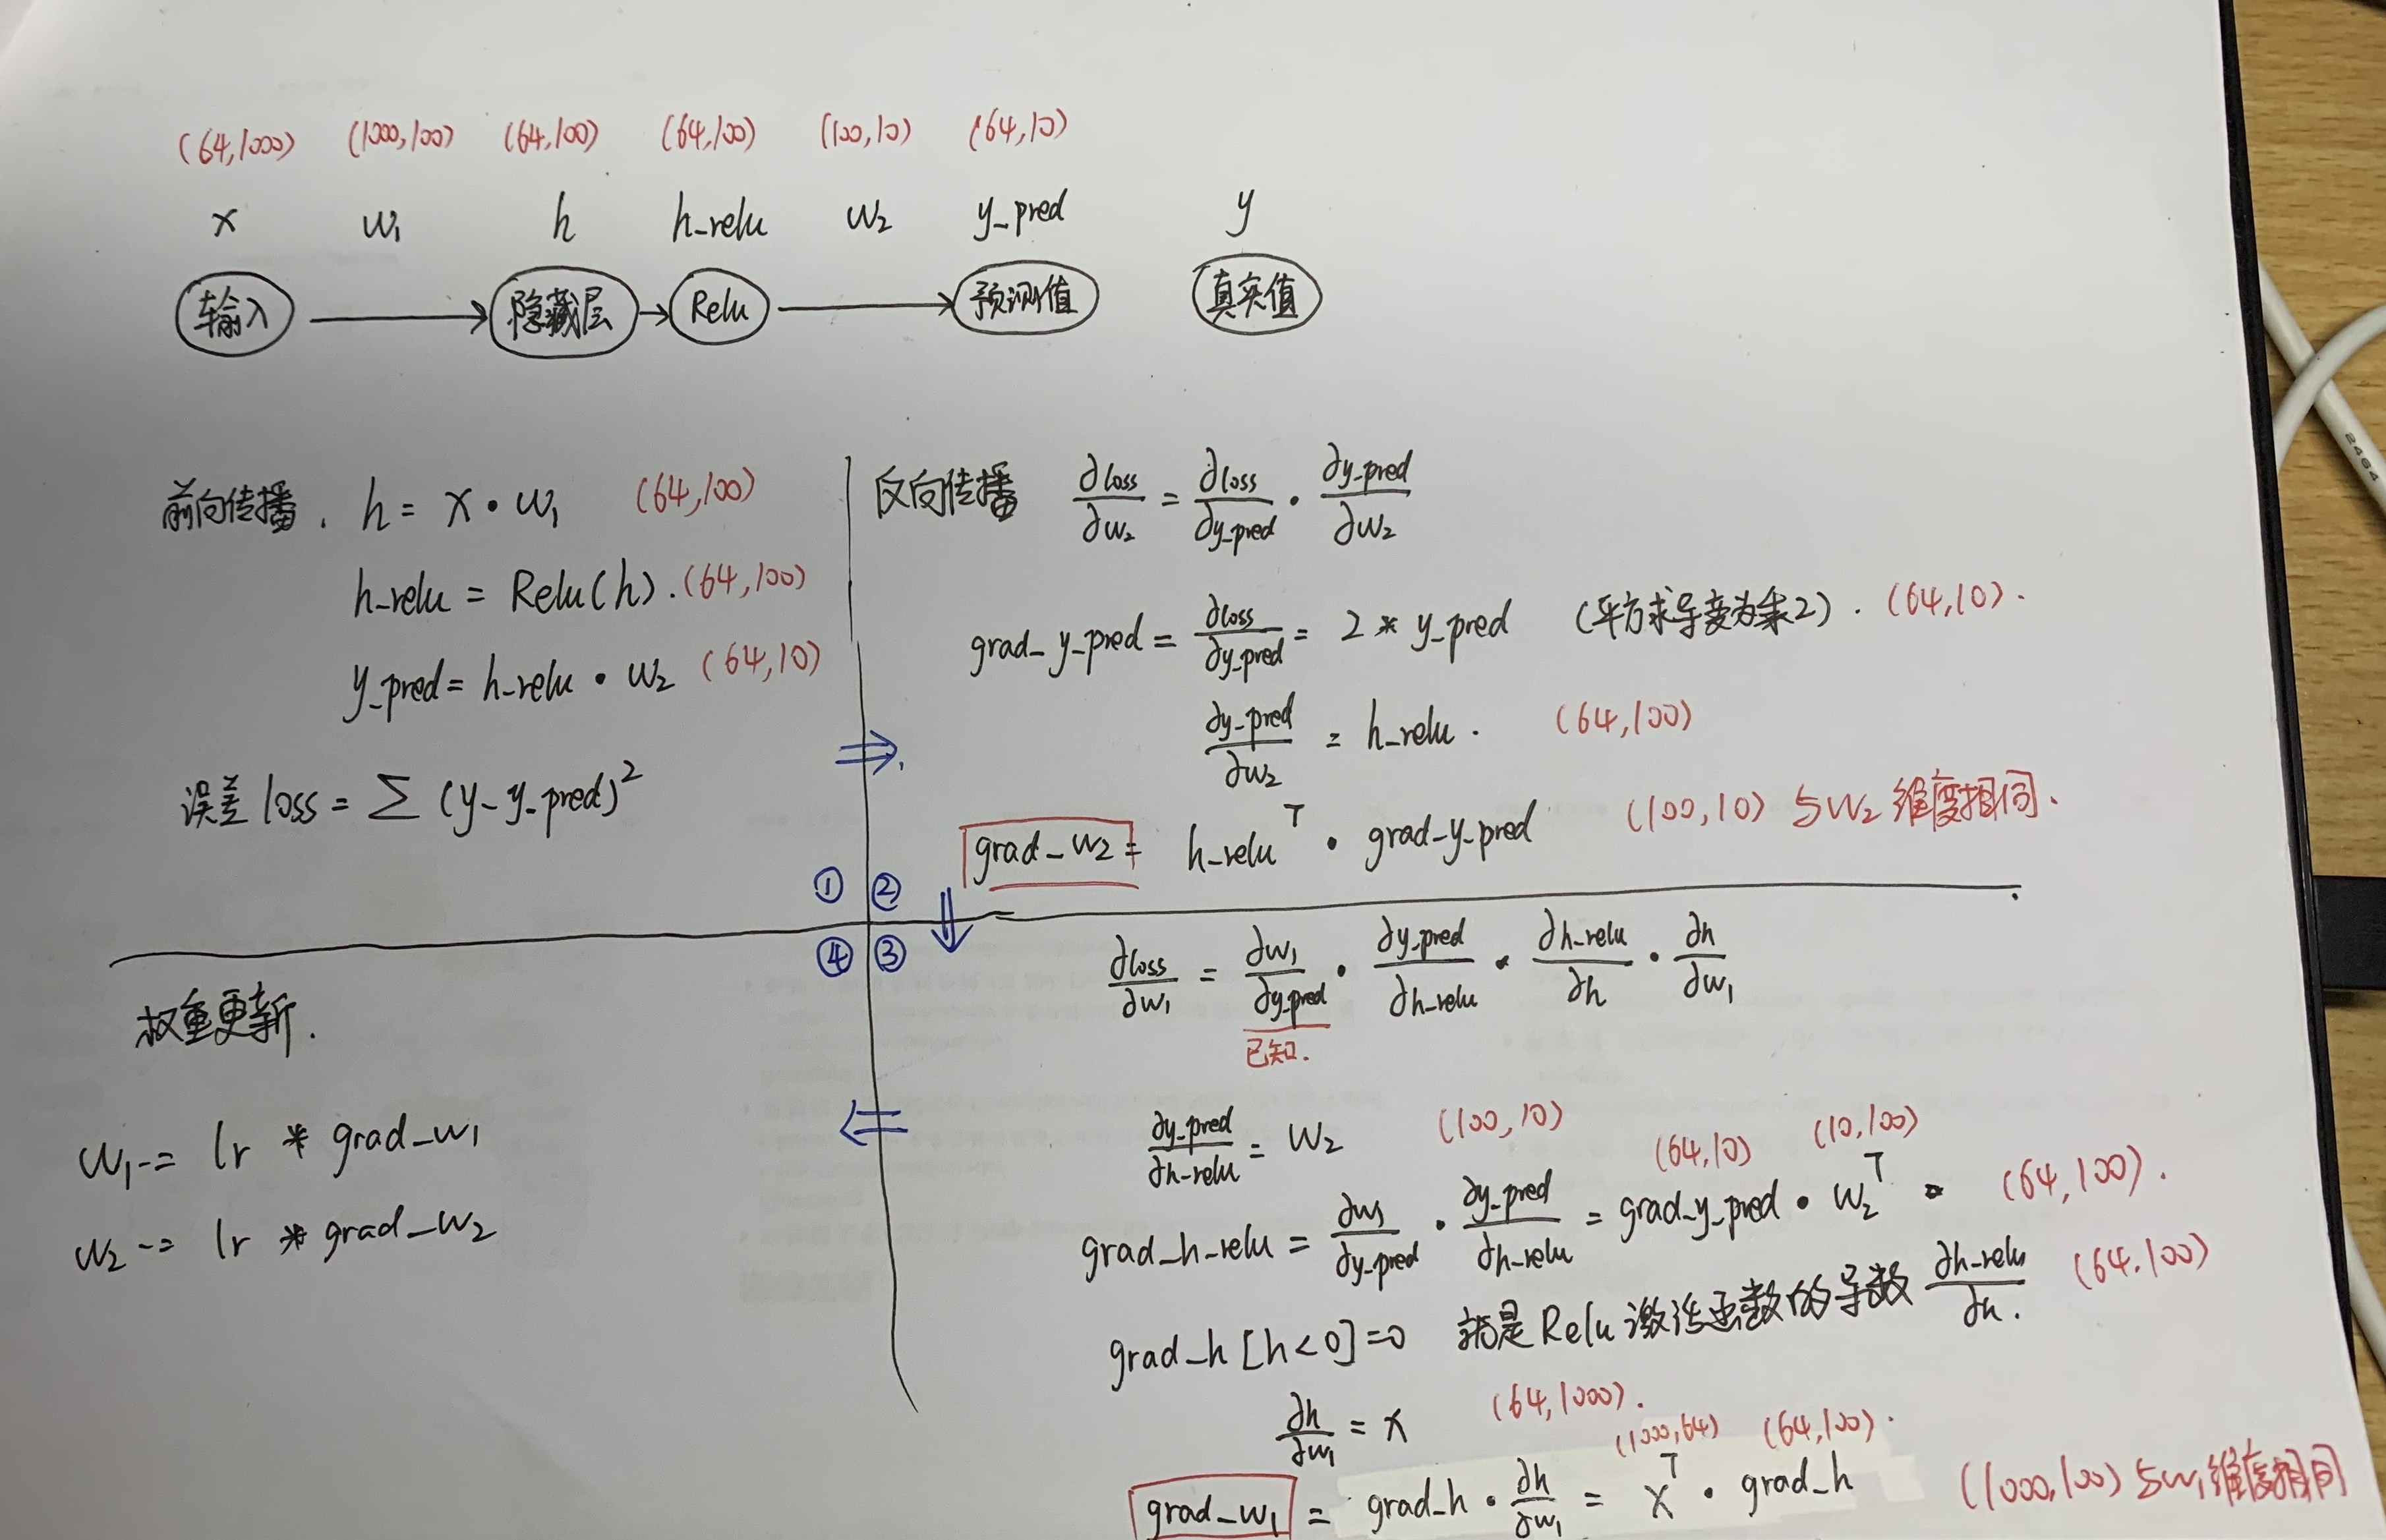 (64,1000) (1000,100) (64,100) (64,100) (100,10) (64,10)
x w₁ h h_relu w₂ y_pred y
输入 → 隐藏层 → Relu → 预测值 真实值
前向传播. h = x • w₁ (64,100)
h_relu = Relu(h). (64,100)
y_pred = h_relu • w₂ (64,10)
误差 loss = ∑ (y - y_pred)²
⇒
①
反向传播 ∂loss/∂w₂ = ∂loss/∂y_pred • ∂y_pred/∂w₂
grad_y_pred = ∂loss/∂y_pred = 2 * y_pred (平方求导变为乘2). (64,10).
∂y_pred/∂w₂ = h_relu. (64,100)
grad_w₂ = h_reluᵀ • grad_y_pred (100,10) 与w₂维度相同.
②
⇓
③
∂loss/∂w₁ = ∂w₁/∂y_pred • ∂y_pred/∂h_relu • ∂h_relu/∂h • ∂h/∂w₁
已知.
∂y_pred/∂h_relu = w₂ (100,10)
(64,10) (10,100)
grad_h_relu = ∂w₁/∂y_pred • ∂y_pred/∂h_relu = grad_y_pred • w₂ᵀ = (64,100).
grad_h [h<0]=0 就是Relu激活函数的导数 ∂h_relu/∂h. (64,100)
∂h/∂w₁ = x (64,1000).
(1000,64) (64,100).
grad_w₁ = grad_h • ∂h/∂w₁ = xᵀ • grad_h (1000,100) 与w₁维度相同
⇐
④
权重更新.
w₁ -= lr * grad_w₁
w₂ -= lr * grad_w₂